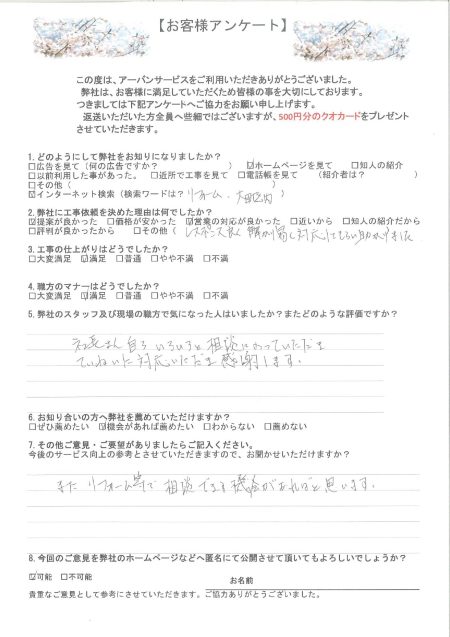 【お客様アンケート】
この度は、アーバンサービスをご利用いただきありがとうございました。
弊社は、お客様に満足していただくため皆様の事を大切にしております。
つきましては下記アンケートへご協力をお願い申し上げます。
返送いただいた方全員へ些細ではございますが、500円分のクオカードをプレゼント
させていただきます。
1.どのようにして弊社をお知りになりましたか?
□広告を見て(何の広告ですか? ) ☑ホームページを見て □知人の紹介
□以前利用した事があった。 □近所で工事を見て □電話帳を見て (紹介者は? )
□その他( )
☑インターネット検索(検索ワードは? リフォーム、大田区内 )
2.弊社に工事依頼を決めた理由は何でしたか?
☑提案が良かった □価格が安かった ☑営業の対応が良かった □近いから □知人の紹介だから
□評判が良かったから □その他( レスポンス良く 対応してもらい助かりました
3.工事の仕上がりはどうでしたか?
□大変満足 ☑満足 □普通 □やや不満 □不満
4.職方のマナーはどうでしたか?
□大変満足 ☑満足 □普通 □やや不満 □不満
5.弊社のスタッフ及び現場の職方で気になった人はいましたか?またどのような評価ですか?
社長さん自ら いろいろと相談にのっていただき
ていねいな対応いただき感謝します。
6.お知り合いの方へ弊社を薦めていただけますか?
□ぜひ薦めたい ☑機会があれば薦めたい □わからない □薦めない
7.その他ご意見・ご要望がありましたらご記入ください。
今後のサービス向上の参考とさせていただきますので、お聞かせいただけますか?
また リフォーム等で 相談できる機会があればと思います。
8.今回のご意見を弊社のホームページなどへ匿名にて公開させて頂いてもよろしいでしょうか?
☑可能 □不可能
お名前
貴重なご意見として参考にさせていただきます。ご協力ありがとうございました。